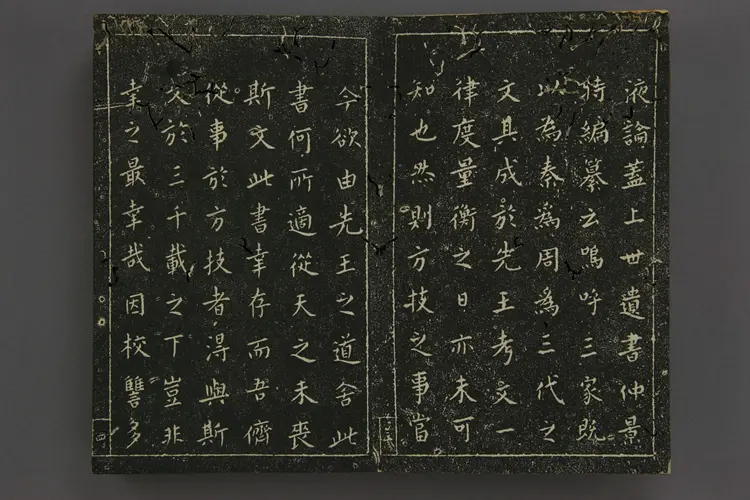 液論蓋上世遺書仲景
特編纂云嗚呼三家既
以為秦為周為三代之
文其成於先王考文一
律度量衡之日亦未可
知也然則方技之事當
今欲由先王之道舍此
書何所適從天之未喪
斯文此書幸存而吾儕
從事於方技者得與斯
文於三千載之下豈非
幸之最幸哉因校讐多